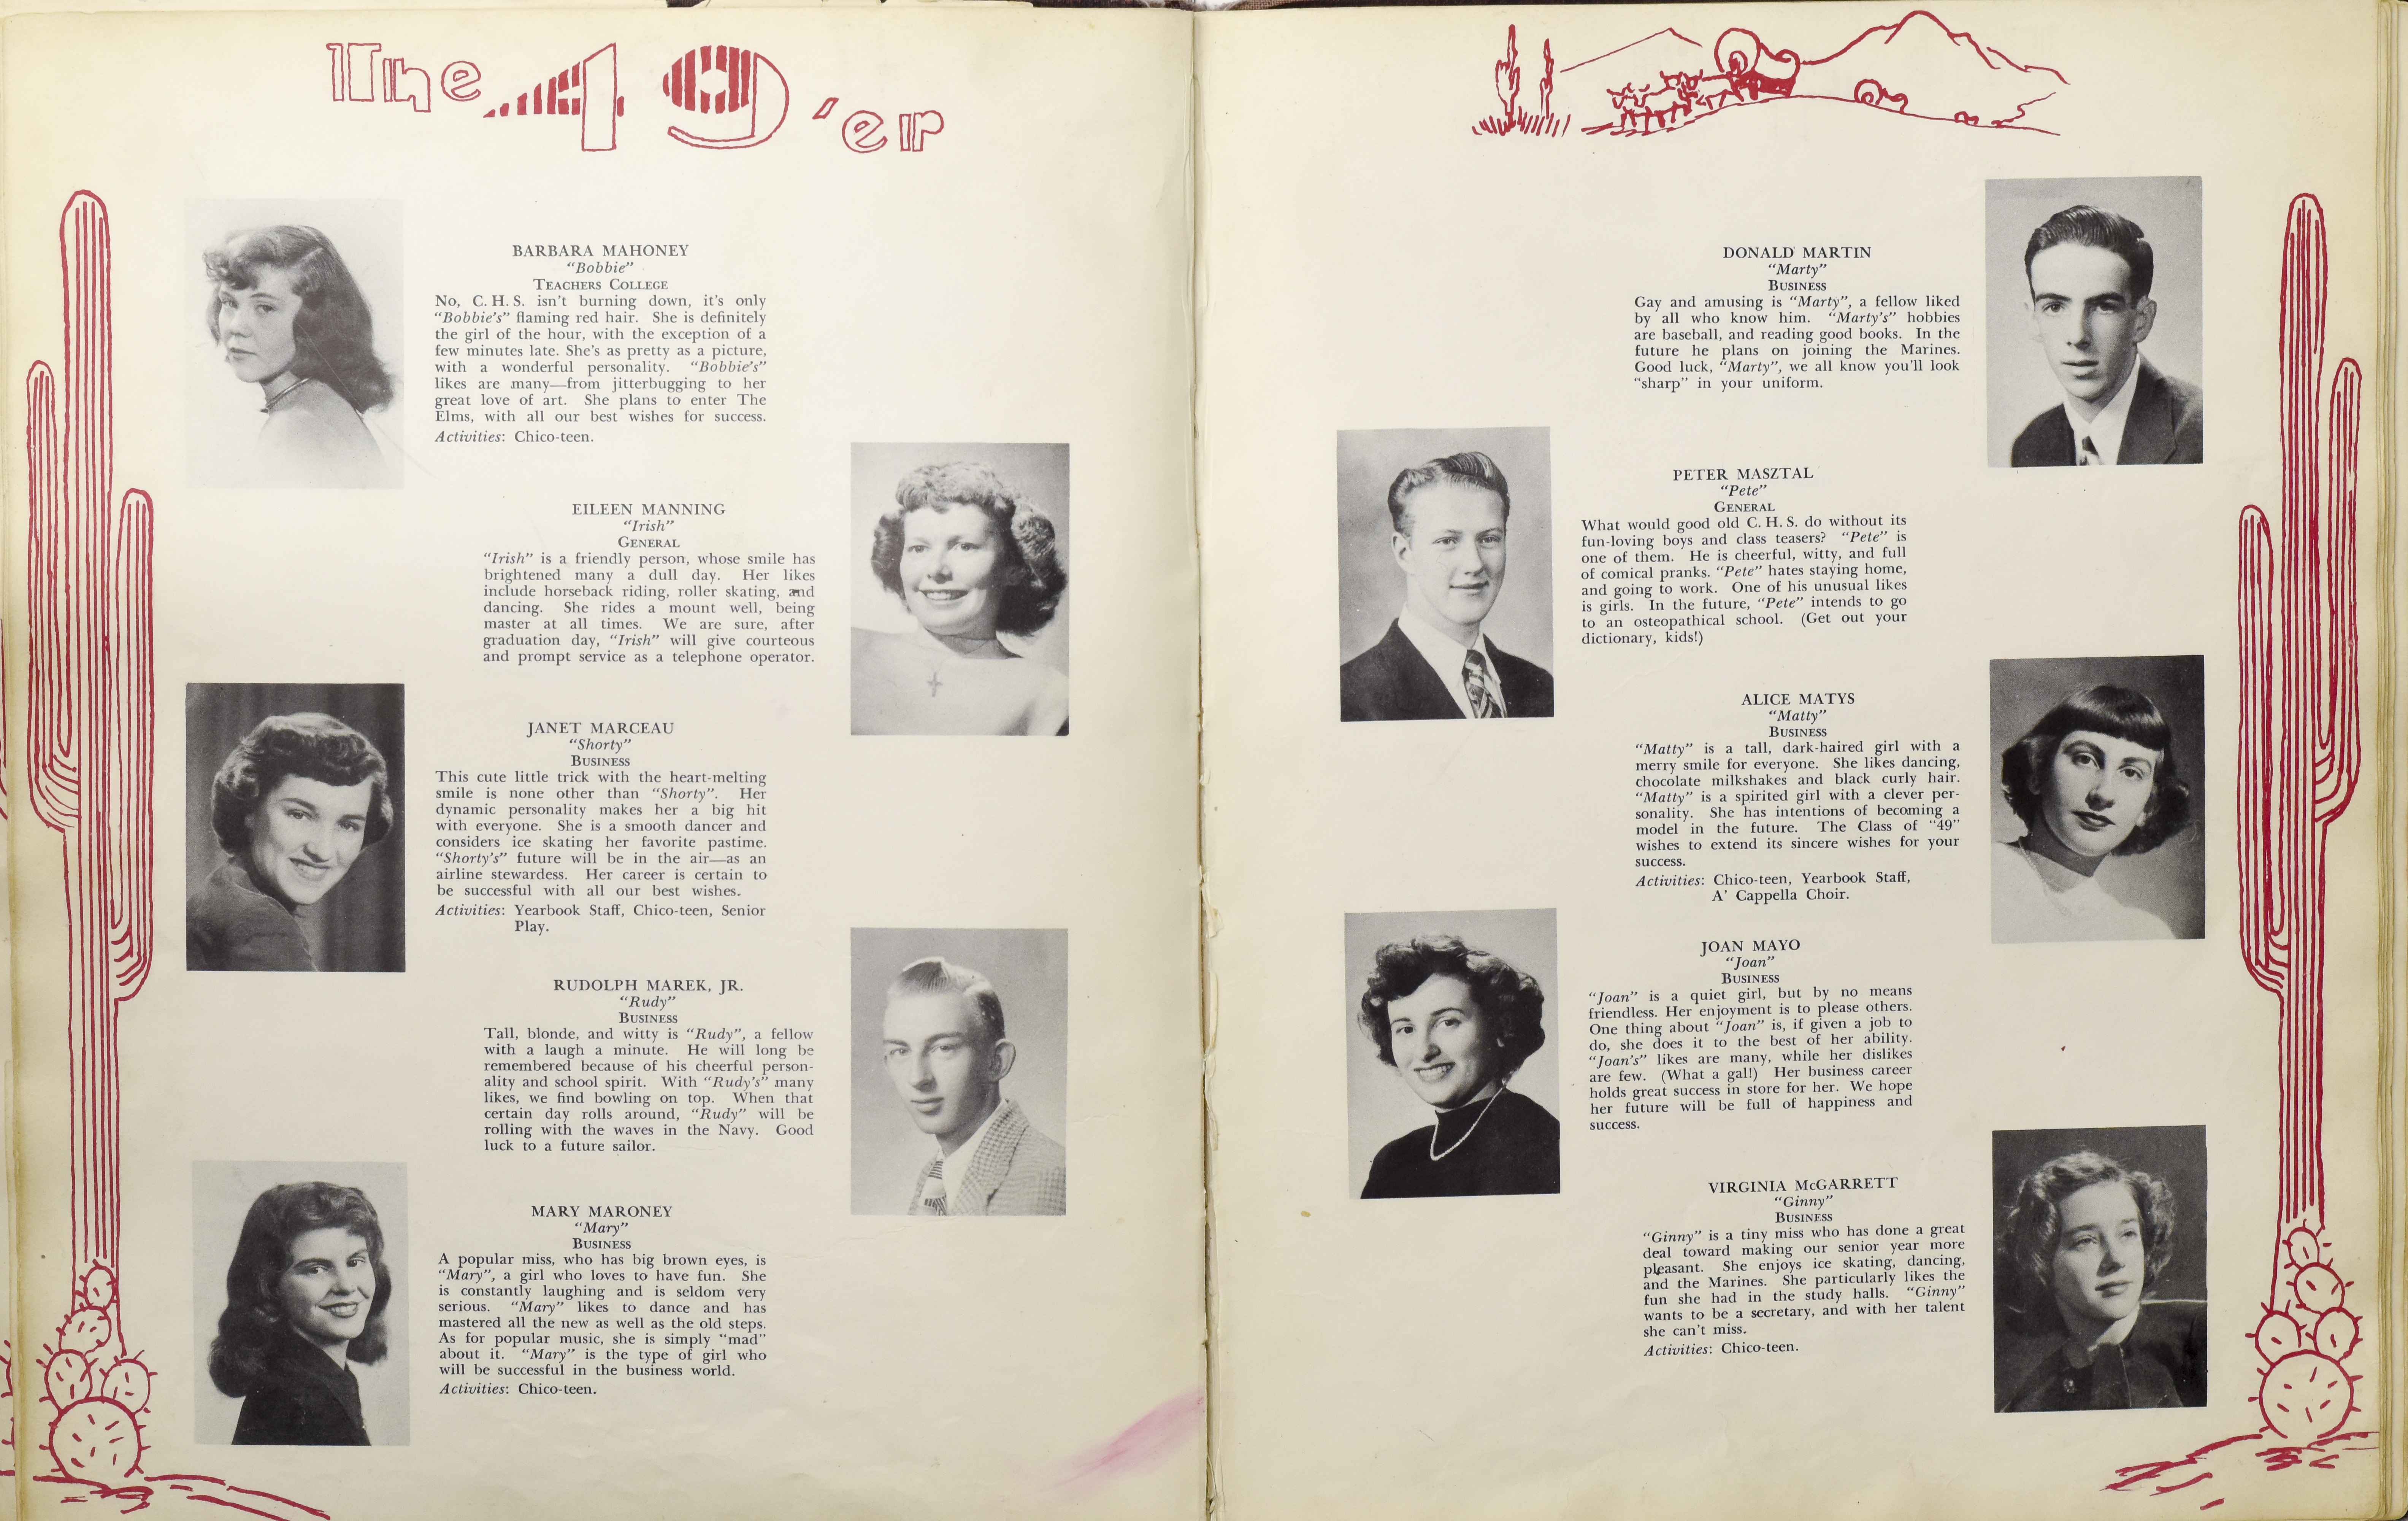 The 49'er
BARBARA MAHONEY
"Bobbie"
TEACHERS COLLEGE
No, C. H. S. isn't burning down, it's only
"Bobbie's" flaming red hair. She is definitely
the girl of the hour, with the exception of a
few minutes late. She's as pretty as a picture,
with a wonderful personality. "Bobbie's"
likes are many—from jitterbugging to her
great love of art. She plans to enter The
Elms, with all our best wishes for success.
Activities: Chico-teen.
EILEEN MANNING
"Irish"
GENERAL
"Irish" is a friendly person, whose smile has
brightened many a dull day. Her likes
include horseback riding, roller skating, and
dancing. She rides a mount well, being
master at all times. We are sure, after
graduation day, "Irish" will give courteous
and prompt service as a telephone operator.
JANET MARCEAU
"Shorty"
BUSINESS
This cute little trick with the heart-melting
smile is none other than "Shorty". Her
dynamic personality makes her a big hit
with everyone. She is a smooth dancer and
considers ice skating her favorite pastime.
"Shorty's" future will be in the air—as an
airline stewardess. Her career is certain to
be successful with all our best wishes.
Activities: Yearbook Staff, Chico-teen, Senior
Play.
RUDOLPH MAREK, JR.
"Rudy"
BUSINESS
Tall, blonde, and witty is "Rudy", a fellow
with a laugh a minute. He will long be
remembered because of his cheerful person-
ality and school spirit. With "Rudy's" many
likes, we find bowling on top. When that
certain day rolls around, "Rudy" will be
rolling with the waves in the Navy. Good
luck to a future sailor.
MARY MARONEY
"Mary"
BUSINESS
A popular miss, who has big brown eyes, is
"Mary", a girl who loves to have fun. She
is constantly laughing and is seldom very
serious. "Mary" likes to dance and has
mastered all the new as well as the old steps.
As for popular music, she is simply "mad"
about it. "Mary" is the type of girl who
will be successful in the business world.
Activities: Chico-teen.
DONALD MARTIN
"Marty"
BUSINESS
Gay and amusing is "Marty", a fellow liked
by all who know him. "Marty's" hobbies
are baseball, and reading good books. In the
future he plans on joining the Marines.
Good luck, "Marty", we all know you'll look
"sharp" in your uniform.
PETER MASZTAL
"Pete"
GENERAL
What would good old C. H. S. do without its
fun-loving boys and class teasers? "Pete" is
one of them. He is cheerful, witty, and full
of comical pranks. "Pete" hates staying home,
and going to work. One of his unusual likes
is girls. In the future, "Pete" intends to go
to an osteopathical school. (Get out your
dictionary, kids!)
ALICE MATYS
"Matty"
BUSINESS
"Matty" is a tall, dark-haired girl with a
merry smile for everyone. She likes dancing,
chocolate milkshakes and black curly hair.
"Matty" is a spirited girl with a clever per-
sonality. She has intentions of becoming a
model in the future. The Class of "49"
wishes to extend its sincere wishes for your
success.
Activities: Chico-teen, Yearbook Staff,
A' Cappella Choir.
JOAN MAYO
"Joan"
BUSINESS
"Joan" is a quiet girl, but by no means
friendless. Her enjoyment is to please others.
One thing about "Joan" is, if given a job to
do, she does it to the best of her ability.
"Joan's" likes are many, while her dislikes
are few. (What a gal!) Her business career
holds great success in store for her. We hope
her future will be full of happiness and
success.
VIRGINIA McGARRETT
"Ginny"
BUSINESS
"Ginny" is a tiny miss who has done a great
deal toward making our senior year more
pleasant. She enjoys ice skating, dancing,
and the Marines. She particularly likes the
fun she had in the study halls. "Ginny"
wants to be a secretary, and with her talent
she can't miss.
Activities: Chico-teen.